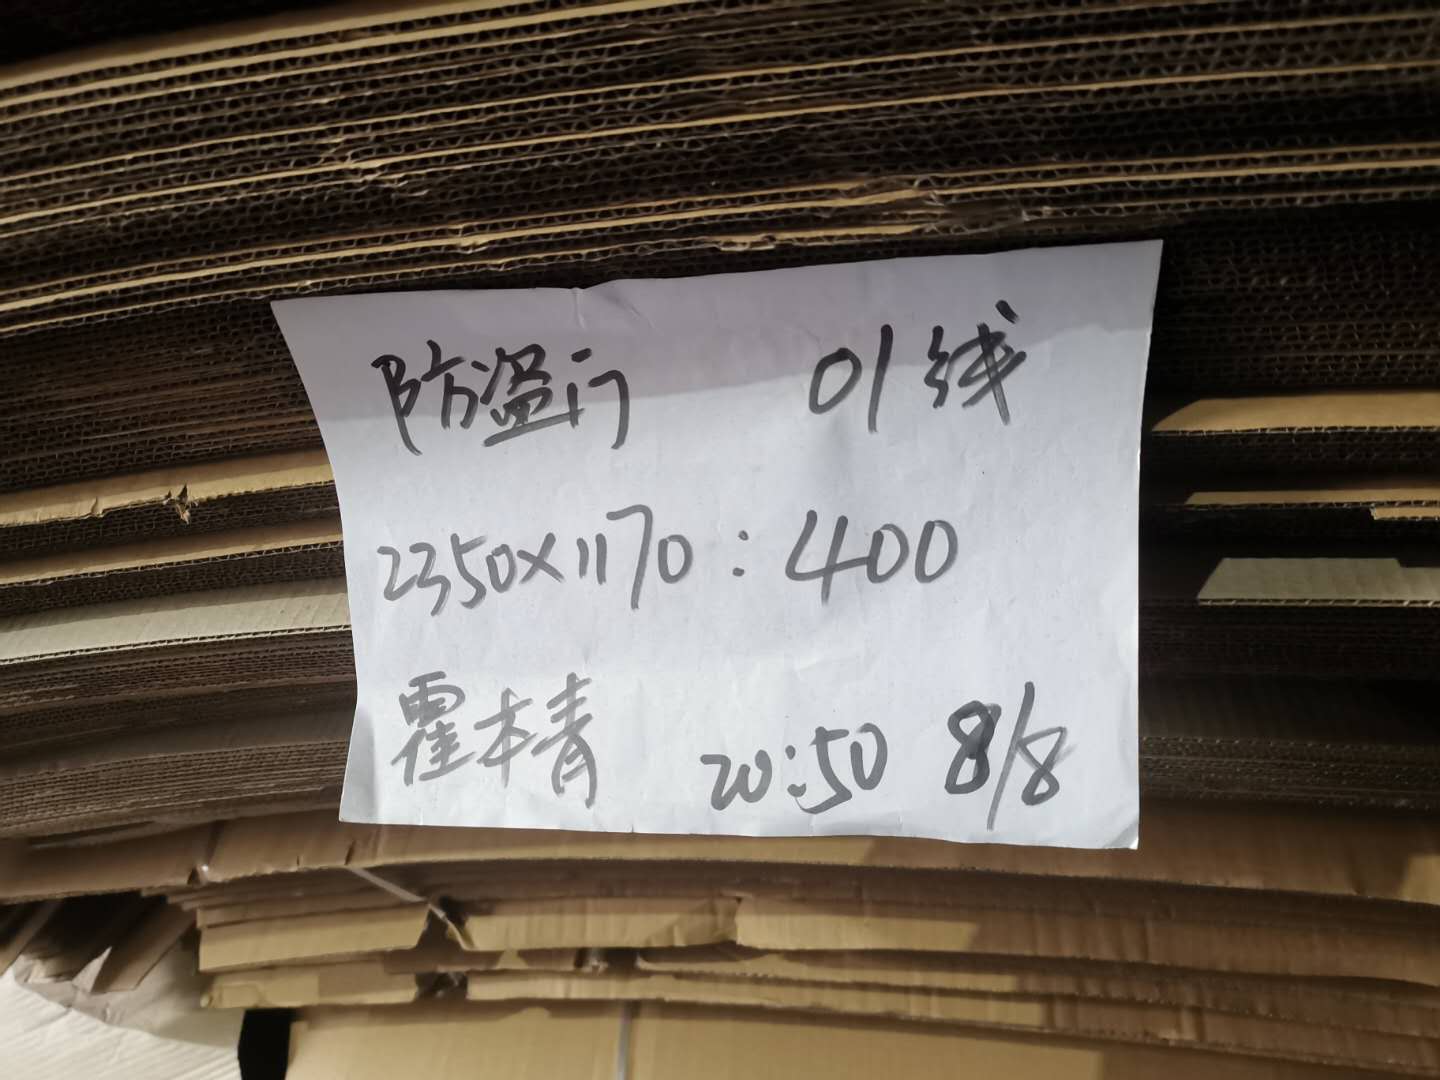 防盗门 01线
2350×1170:400
霍本青 20:50 8/8